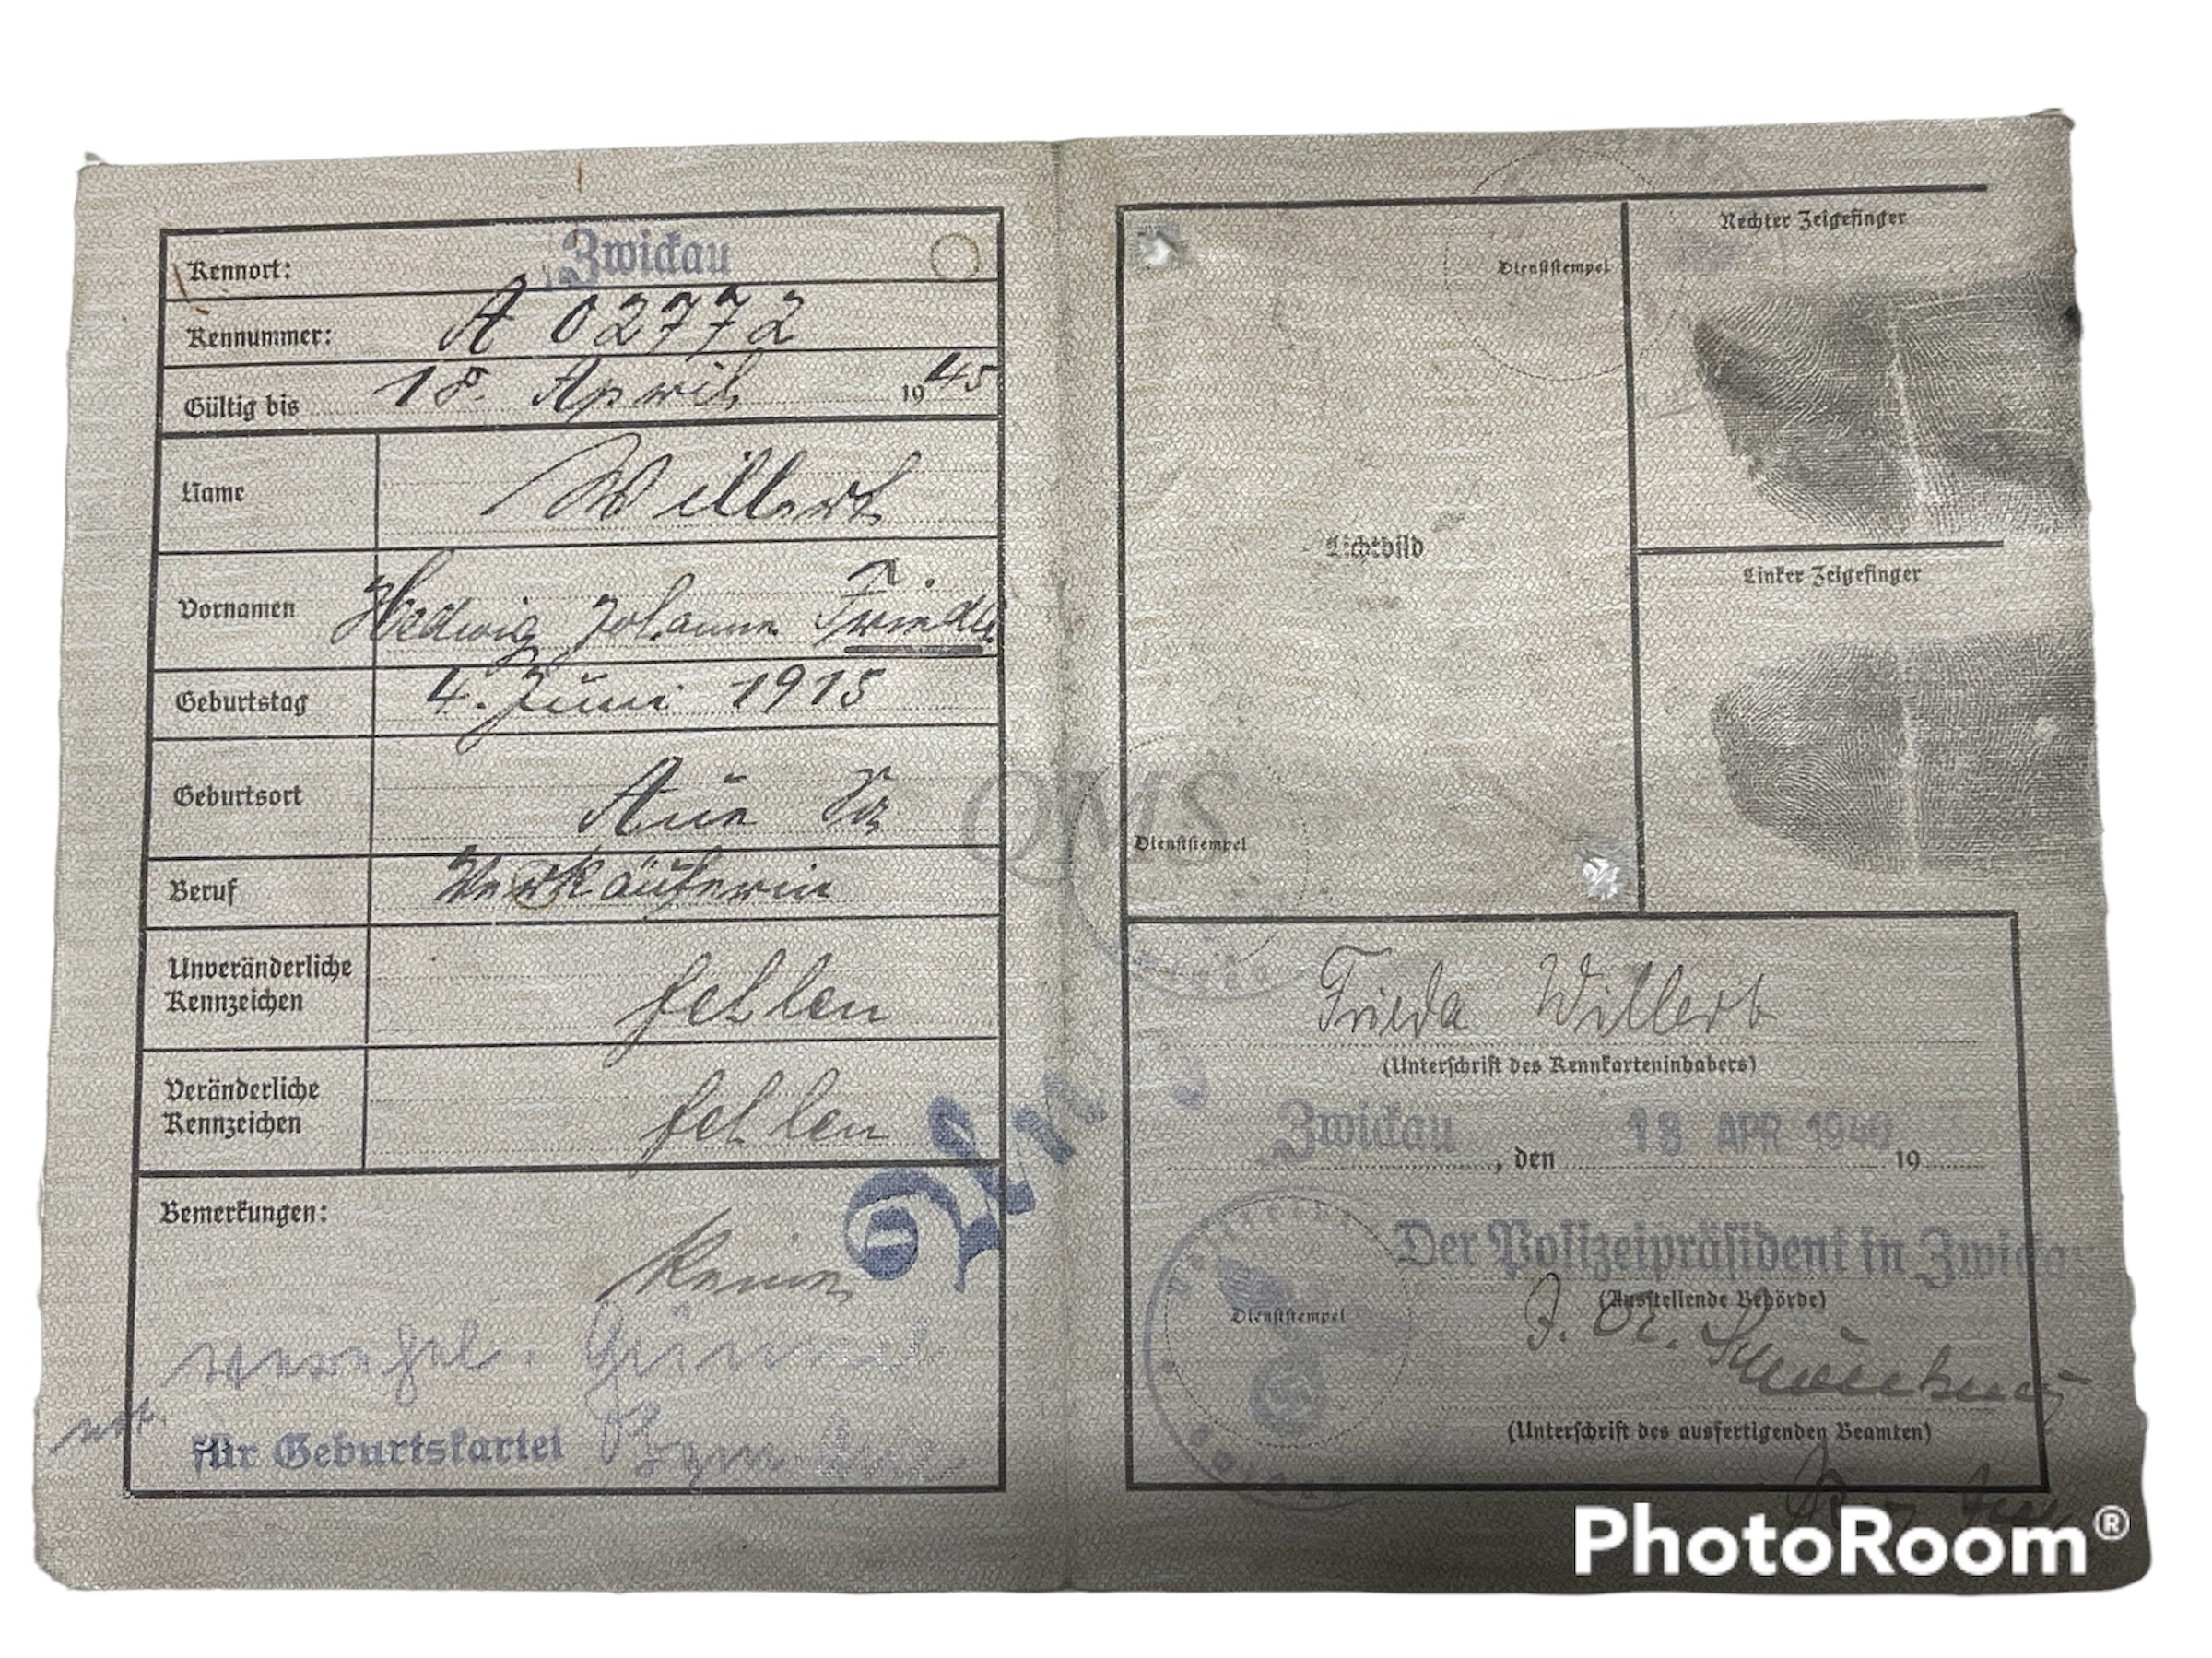 Kennort: Zwickau
Kennummer: A 02772
Gültig bis 18. April 1945
Name Willert
Vornamen Hedwig Johanne Frieda
Geburtstag 4. Juni 1915
Geburtsort Aue Sa
Beruf Verkäuferin
Unveränderliche
Kennzeichen fehlen
Veränderliche
Kennzeichen fehlen
Bemerkungen:
Keine
für Geburtskartei
QMS
Dienststempel
Rechter Zeigefinger
Lichtbild
Linker Zeigefinger
Dienststempel
Frieda Willert
(Unterschrift des Kennkarteninhabers)
Zwickau, den 18 APR 1940 19
Der Polizeipräsident in Zwickau
(Ausstellende Behörde)
Dienststempel
(Unterschrift des ausfertigenden Beamten)
PhotoRoom®